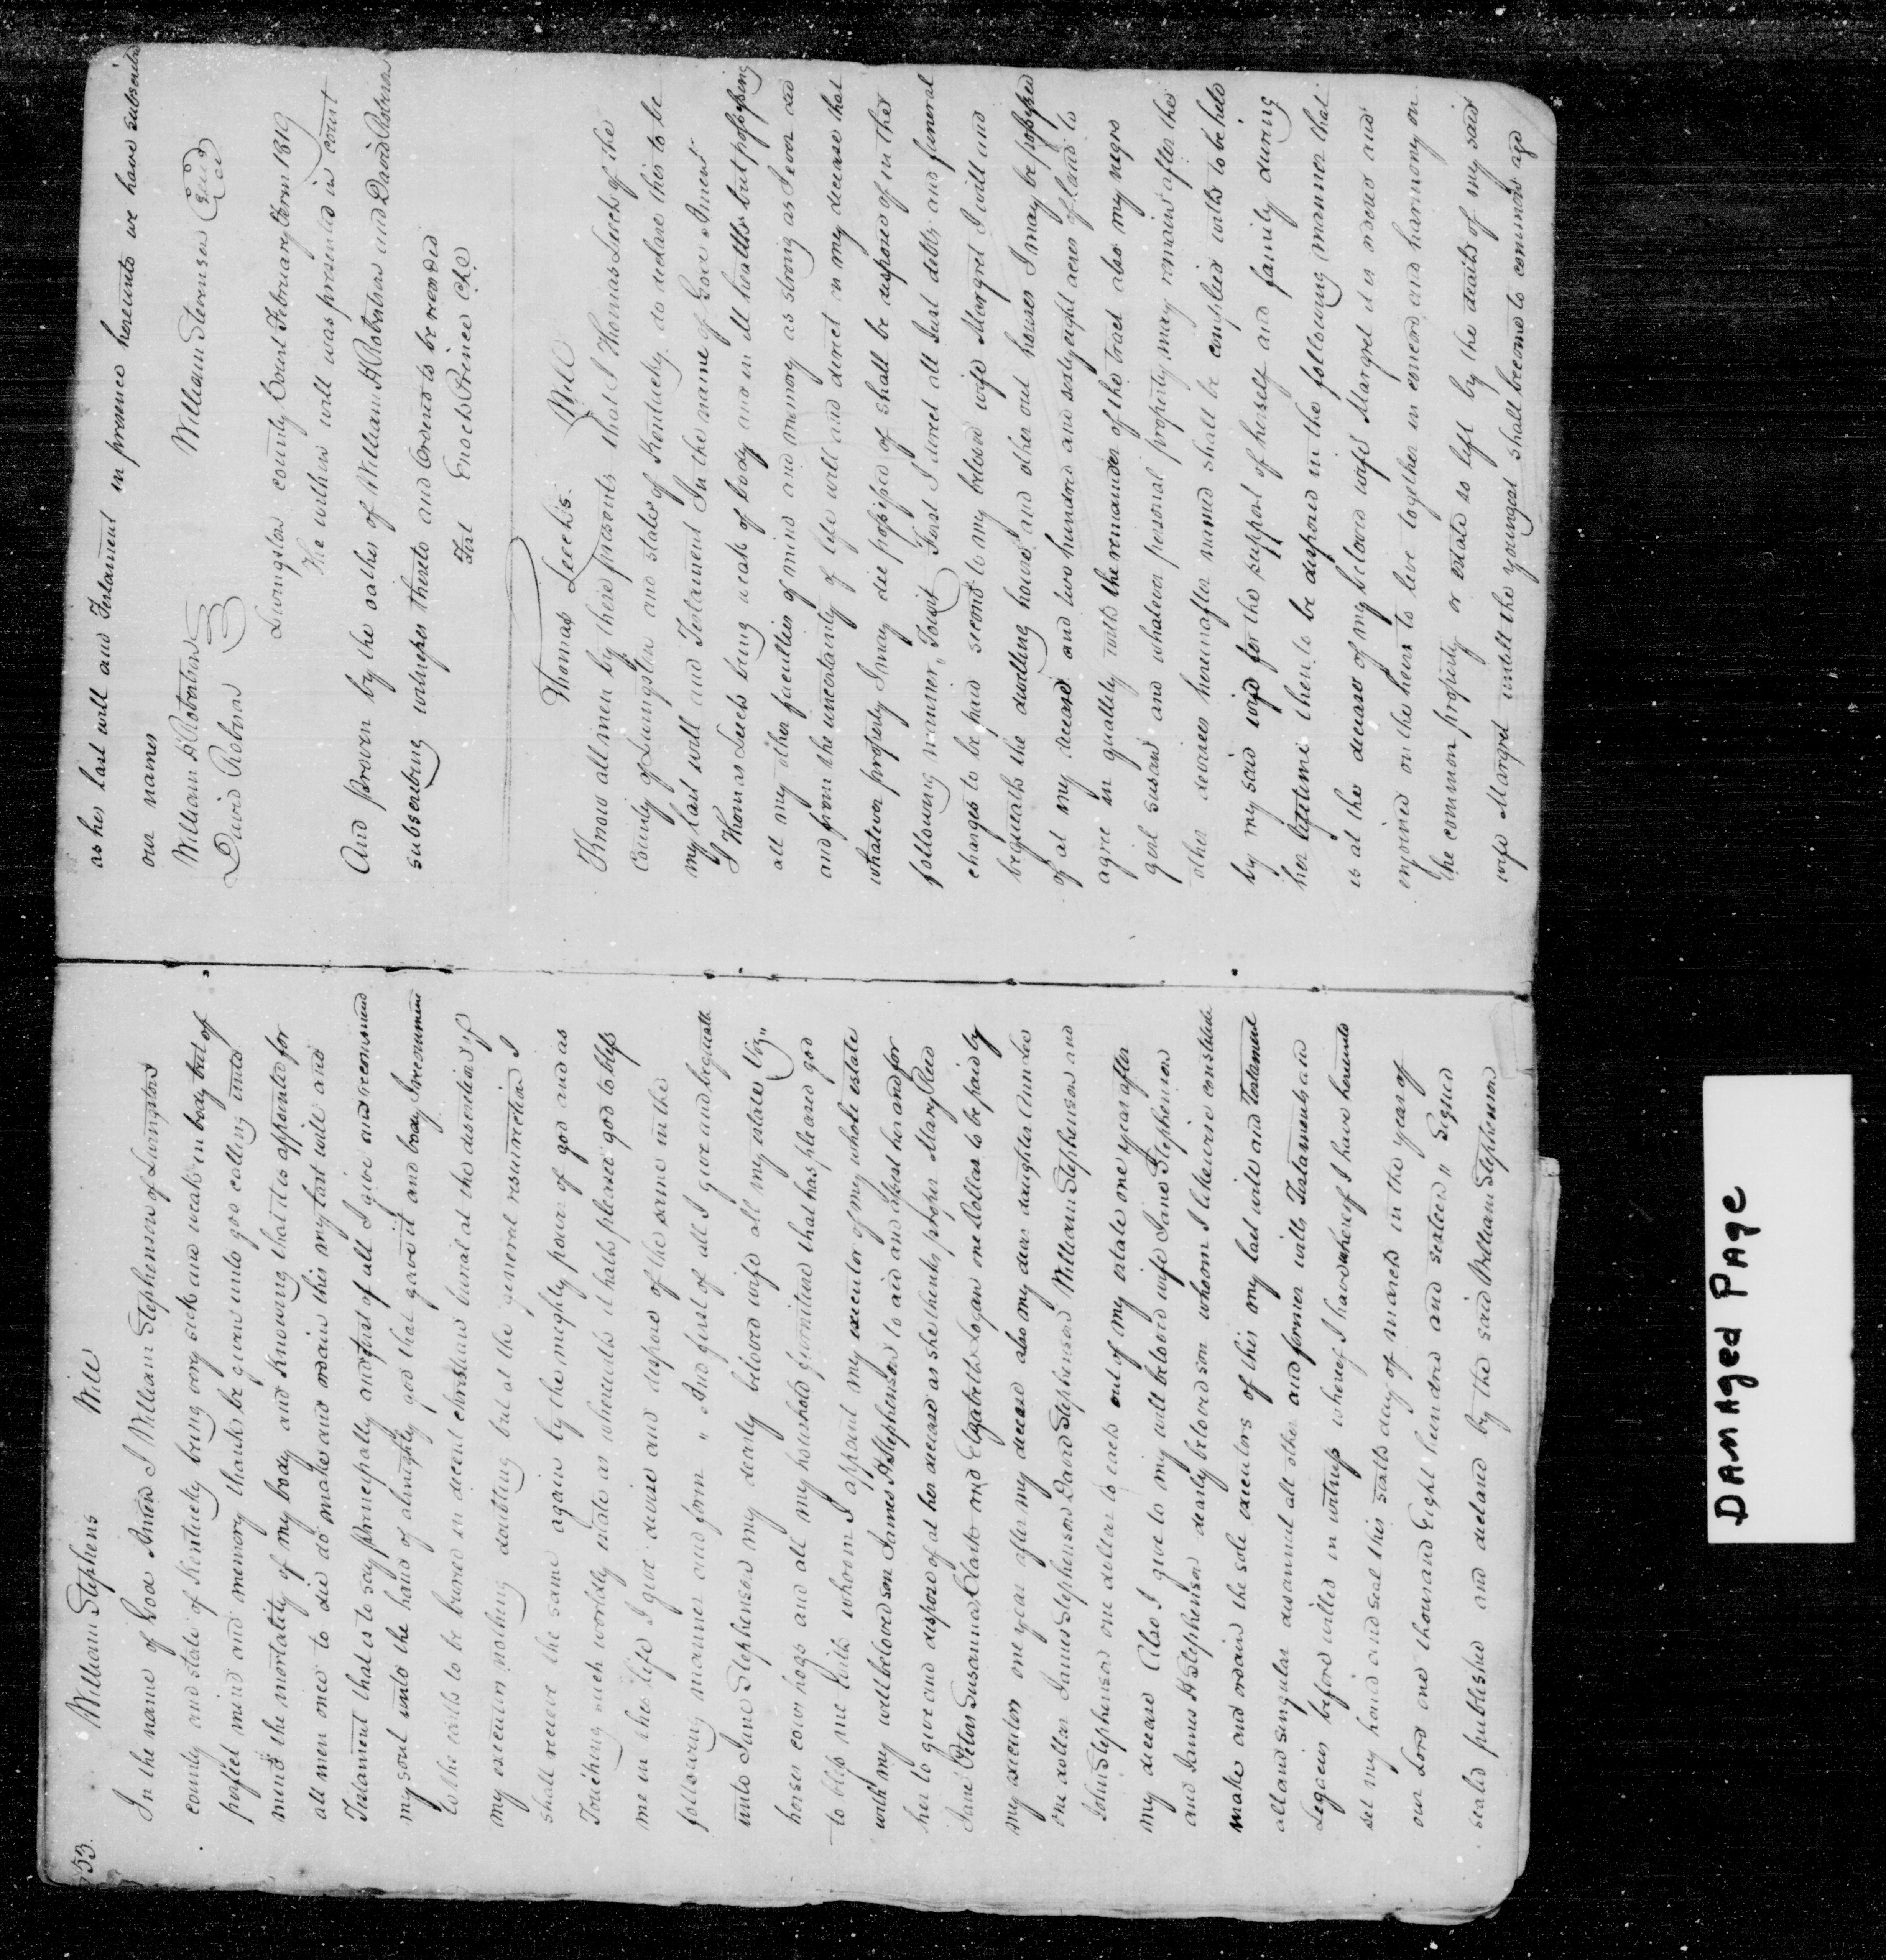 53.
William Stephens Will
In the name of God Amen I William Stephenson of Livingston
county and state of Kentucky being very sick and weak in body but of
perfect mind and memory thanks be given unto god calling unto
mind the mortality of my body and knowing that it is appointed for
all men once to die do make and ordain this my last will and
Testament that is to say principally and first of all I give and recommend
my soul unto the hand of almighty god that gave it and body I recommend
to the earth to be buried in decent christian burial at the discretion of
my executors nothing doubting but at the general resurrection I
shall receive the same again by the mighty power of god and as
Touching such worldly estate as wherewith it hath pleased god to bless
me in this life I give devise and dispose of the same in the
following manner and form " And first of all I give and bequeath
unto Jane Stephenson my dearly beloved wife all my estate Viz"
horses cows hogs and all my household furniture that has pleased god
to bless me with whom I appoint my executor of my whole estate
with my well beloved son James A Stephenson to aid and assist her and for
her to give and dispose of at her decease as she thinks proper Mary Reed
Jane Peters Susanna Clark and Elizabeth Logan one Dollar to be paid by
my executors one year after my decease also my dear daughter Ann Lee
one dollar James Stephenson David Stephenson William Stephenson and
John Stephenson one dollar to each out of my estate one year after
my decease Also I give to my well beloved wife Jane Stephenson
and James A Stephenson dearly beloved son whoom I likewise constitute
make and ordain the sole executors of this my last will and Testament
all and singular disannul all other and former wills Testaments and
Legacies before willed in witness whereof I have whereof I have hereunto
set my hand and seal this sixth day of march in the year of
our Lord one thousand Eight hundred and sixteen " Signed
seald published and declard by the said William Stephenson
as his last will and Testament in presence hereunto we have subscribed
our names
William H Robertson William Stevenson Seal
David Robison
Livingston county Court February term 1819
The within will was presented in court
And proven by the oathes of William H Robertson and David Robinson
subscribing witnesses thereto and Ordered to be recorded
Test Enoch Prince Clk
Thomas Leeck's Will
Know all men by these presents that I Thomas Leeck of the
County of Livingston and state of Kentucky do declare this to be
my last will and Testament In the name of God Amen
I Thomas Leeck being weak of body and in ill health but possessing
all my other faculties of mind and memory as strong as I ever did
and from the uncertainty of life will and direct in my decease that
whatever property I may die possessed of shall be disposed of in the
following manner, Towit First I direct all Just debts and funeral
charges to be paid second to my beloved wife Margret I will and
bequeath the dwelling house and other out houses I may be possessed
of at my decease and two hundred and sixty eight acres of land to
agree in quality with the remainder of the tract also my negro
girl susan and whatever personal property may remain after the
other devises hereinafter named shall be complied with to be held
by my said wife for the support of herself and family during
her lifetime then to be disposed in the following manner that
is at the decease of my beloved wife Margret it is willed and
enjoined on the heirs to live together in concord and harmony on
the common property or estate so left by the death of my said
wife Margret untill the youngest shall become to common age
DAMAGED PAGE